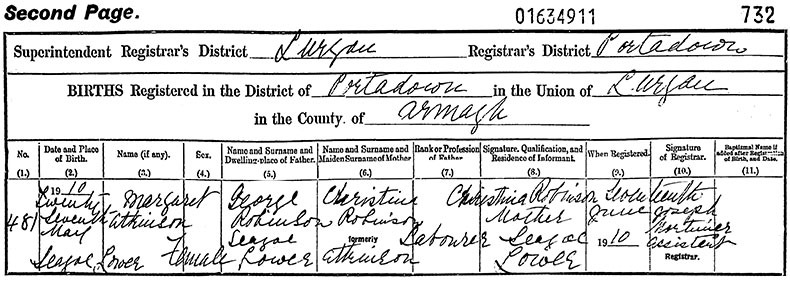 Second Page. 01634911 732
Superintendent Registrar's District Lurgan Registrar's District Portadown
BIRTHS Registered in the District of Portadown in the Union of Lurgan
in the County of Armagh
No. Date and Place of Birth. Name (if any). Sex. Name and Surname and Dwelling-place of Father. Name and Surname and Maiden Surname of Mother Rank or Profession of Father. Signature, Qualification, and Residence of Informant. When Registered. Signature of Registrar. Baptismal Name if added after Registration of Birth, and Date.
(1.) (2.) (3.) (4.) (5.) (6.) (7.) (8.) (9.) (10.) (11.)
1910
Twenty Margaret George Christina Christina Robinson
481 Seventh Atkinson Robinson Robinson Mother June Joseph
May Seagoe formerly Labourer Seagoe 1910 Mortimer
Seagoe Lower Female Lower Atkinson Lower Assistant
Registrar.